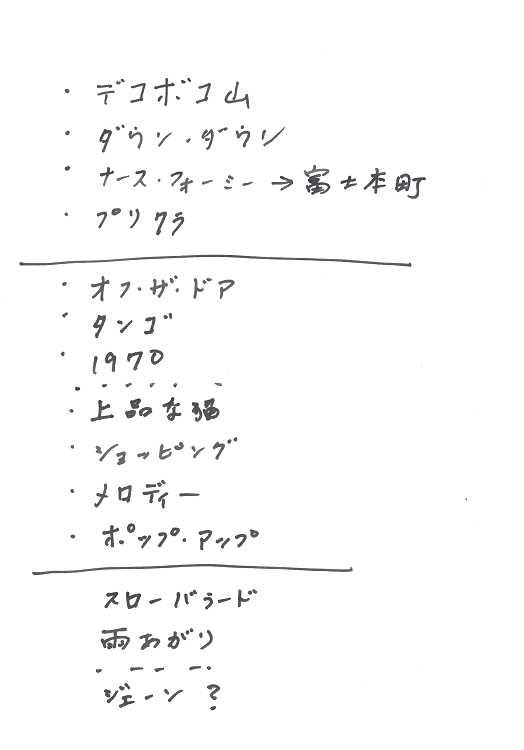 ・デコボコ山
・ダウン・ダウン
・ナース・フォーミー→富士本町
・プリクラ
・オフ・ザ・ドア
・タンゴ
・1970
・上品な猫
・ショッピング
・メロディー
・ポップ・アップ
スローバラード
雨あがり
ジェーン?